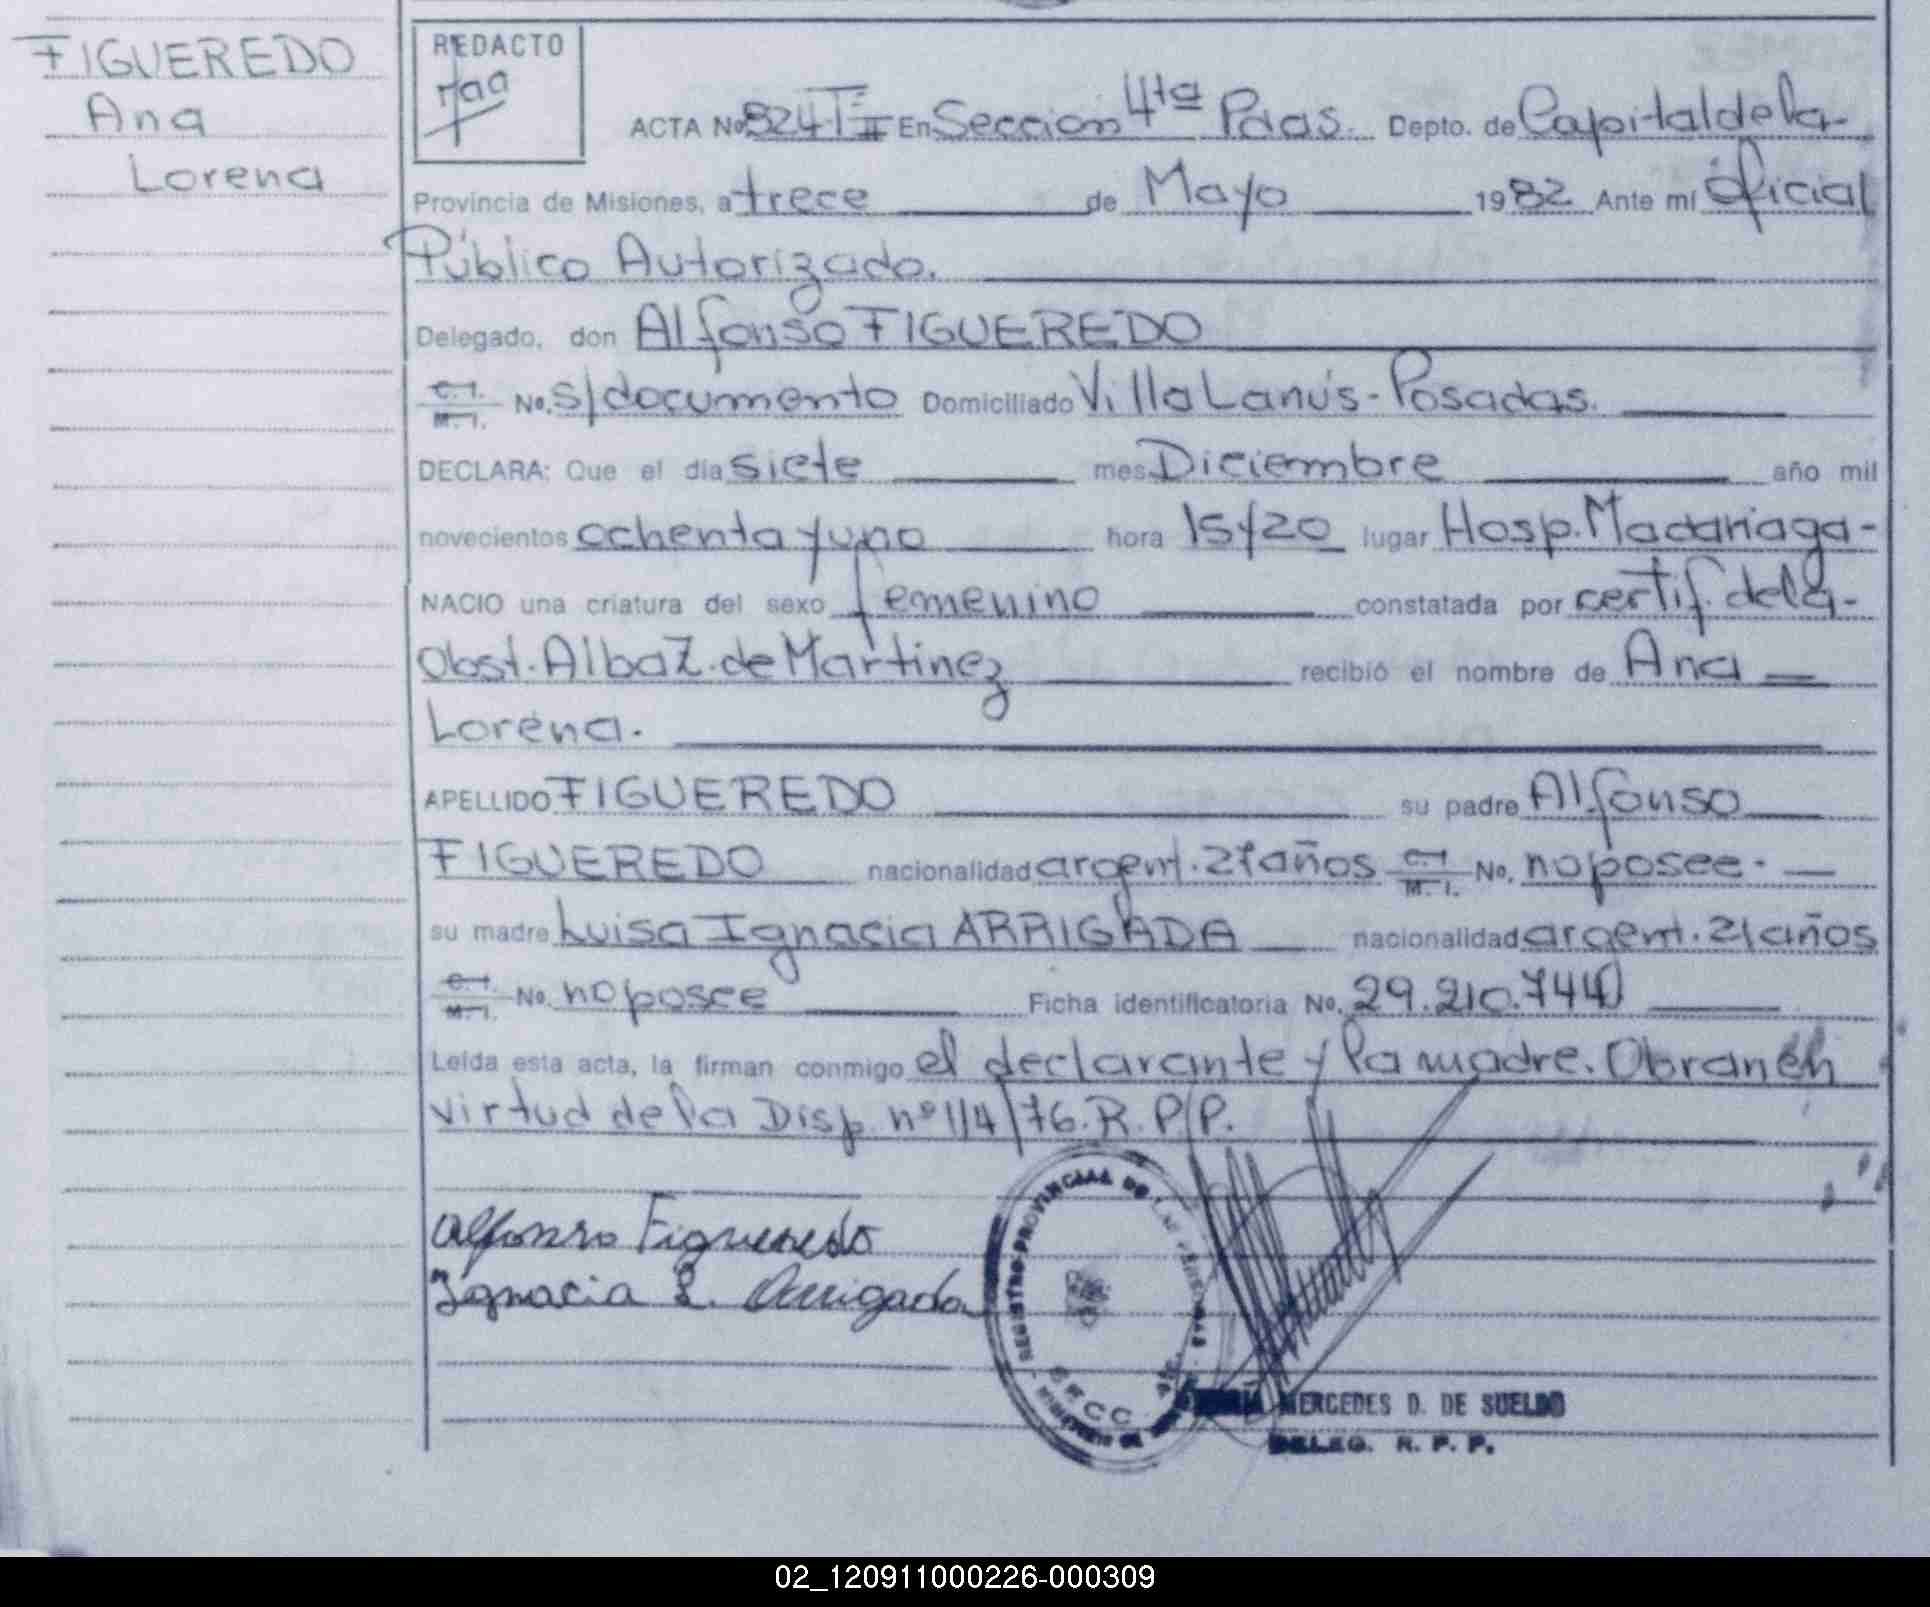 FIGUEREDO
Ana
Lorena
REDACTO
ACTA No 824 T II En Sección 4ta Pdas. Depto. de Capital de la
Provincia de Misiones, a trece de Mayo 1982 Ante mí Oficial
Público Autorizado.
Delegado, don Alfonso FIGUEREDO
C. I. M. I. No. s/documento Domiciliado Villa Lanús - Posadas.
DECLARA: Que el día siete mes Diciembre año mil
novecientos ochenta y uno hora 15y20 lugar Hosp. Madariaga-
NACIO una criatura del sexo femenino constatada por certif. de la-
Obst. Alba Z. de Martinez recibió el nombre de Ana
Lorena.
APELLIDO FIGUEREDO su padre Alfonso
FIGUEREDO nacionalidad argent. 21 años C. I. M. I. No. no posee.
su madre Luisa Ignacia ARRIGADA nacionalidad argent. 21 años
C. I. M. I. No. no posee Ficha identificatoria No. 29.210.744
Leída esta acta, la firman conmigo el declarante y la madre. Obran en
virtud de la Disp. nº 114/76. R.P.P.
Alfonso Figueredo
Ignacia L. Arrigada
REGISTRO PROVINCIAL DE LAS PERSONAS
MERCEDES D. DE SUELDO
DELEG. R. P. P.
02_120911000226-000309